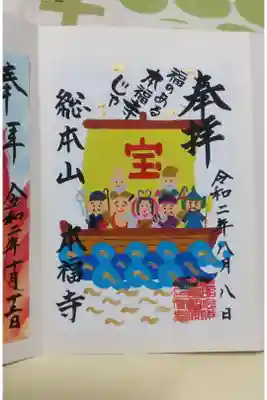 奉拝
令和二年八月八日
福のある
本福寺
じゃ
宝
総本山 本福寺
奉拝
令和二年